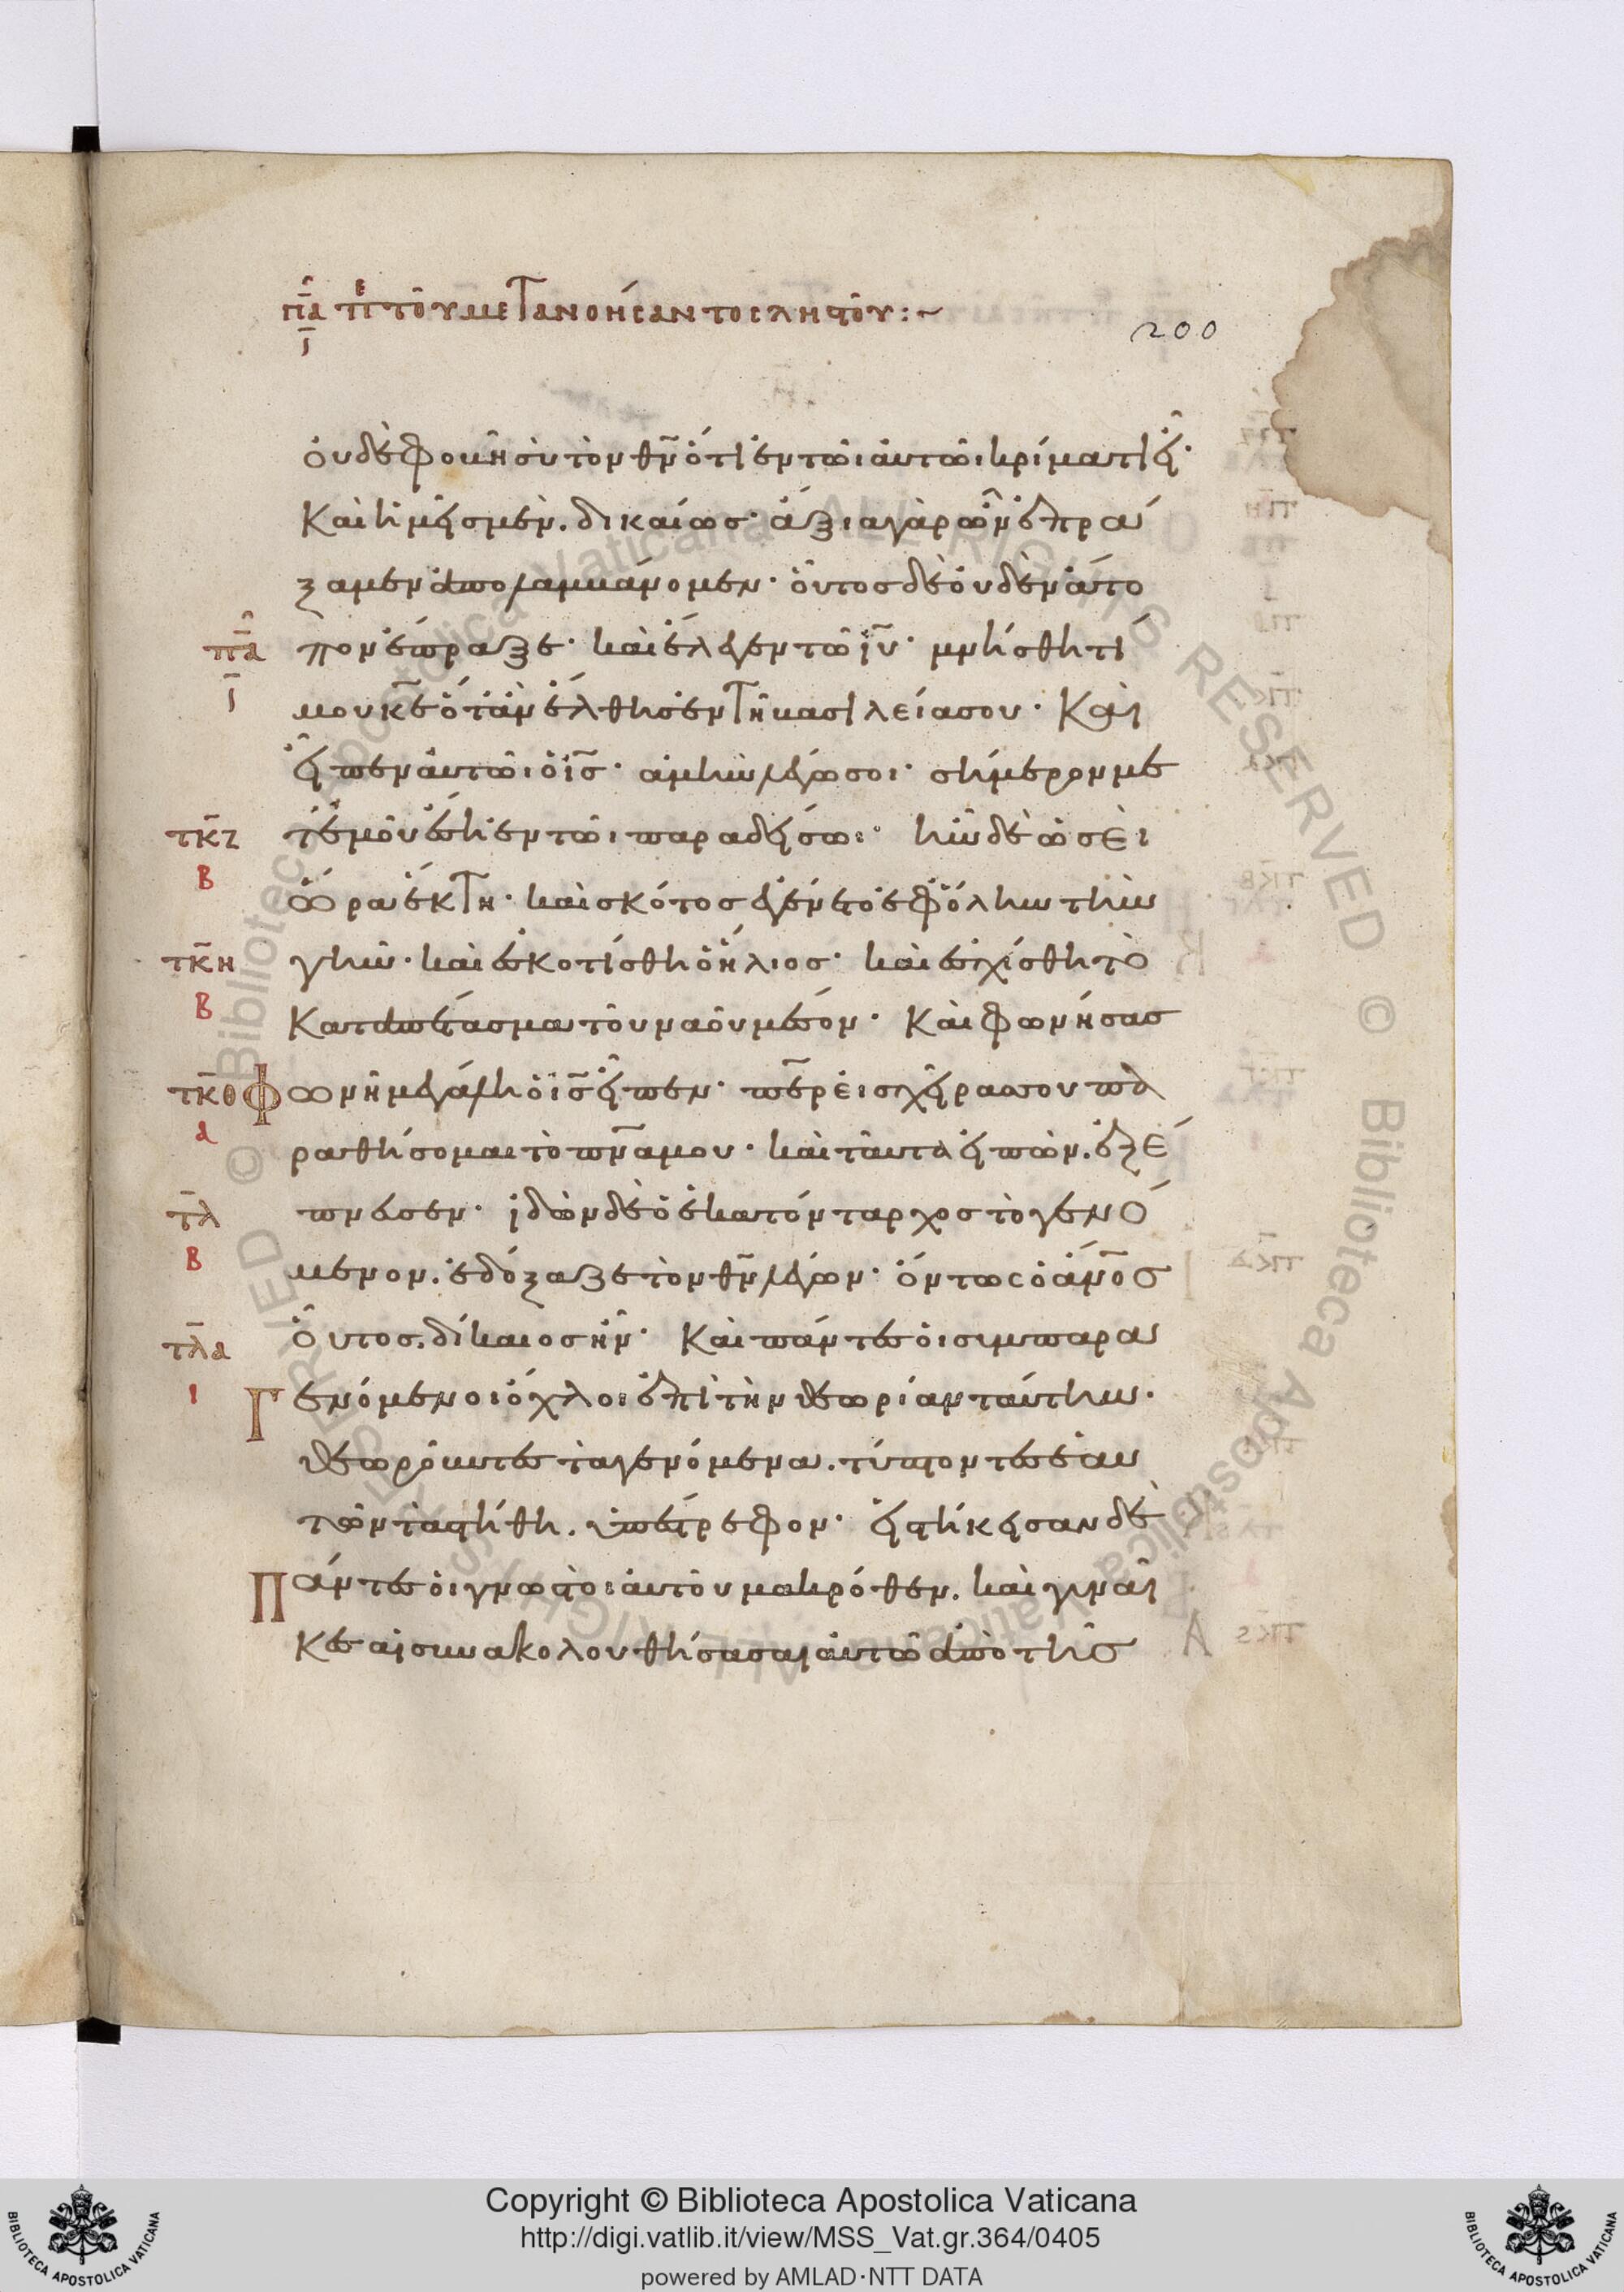 πα πε τοῦ μετανοήσαντος ληστοῦ:~
ι
200
οὐδὲ φοβῆ σὺ τὸν θν ὅτι ἐν τῶι αὐτῶι κρίματι εἶ·
Καὶ ἡμεῖς μὲν. δικαίως· ἄξια γὰρ ὧν ἐπρά
ξαμεν ἀπολαμβάνομεν· οὗτος δὲ οὐδὲν ἄτο
πα πον ἔπραξε· καὶ ἔλεγεν τῶ ιυ· μνήσθητί
ι
μου κε ὅταν ἔλθης ἐν τῆ βασιλείασου· Καὶ
εἶπεν αὐτῶι ὁ ις· ἀμὴν λέγω σοι· σήμερον με
τκζ τἐμοῦ ἔση ἐν τῶι παραδείσωι· ἦν δὲ ὡσεὶ
β
ὥρα ἕκτη· καὶ σκότος ἐγένετο ἐφ ὅλην τὴν
τκη γῆν· καὶ ἐσκοτίσθη ὁ ἥλιος· καὶ ἐσχίσθη τὸ
β
Καταπέτασμα τοῦ ναοῦ μέσον· Καὶ φωνήσας
τκθ Φωνῆ μεγάλη ὁ ις εἶπεν· περ εἰς χεῖρας σου πα
α
ραθήσομαι τὸ πνα μου· καὶ ταῦτα εἰπὼν. ἐξέ
τλ πνευσεν· ἰδὼν δὲ ὁ ἑκατόνταρχος τὸ γενό
β
μενον. ἐδόξαξε τὸν θν λέγων· ὄντως ὁ ἄνος
τλα οὗτος. δίκαιος ἦν· Καὶ πάντες οἱ συμπαρα
ι
Γενόμενοι ὄχλοι ἐπὶ τὴν θεωρίαν ταύτην·
θεωροῦντες τὰ γενόμενα. τύπτοντες ἑαυ
τῶν τὰ στήθη. ὑπέστρεφον· εἱστήκεισαν δὲ
Πάντες οἱ γνωστοὶ αὐτοῦ μακρόθεν. καὶ γυναῖ
κες αἱ συνακολουθήσασαι αὐτῶ ἀπὸ τῆς
Copyright © Biblioteca Apostolica Vaticana
http://digi.vatlib.it/view/MSS_Vat.gr.364/0405
powered by AMLAD·NTT DATA
BIBLIOTECA APOSTOLICA VATICANA
BIBLIOTECA APOSTOLICA VATICANA